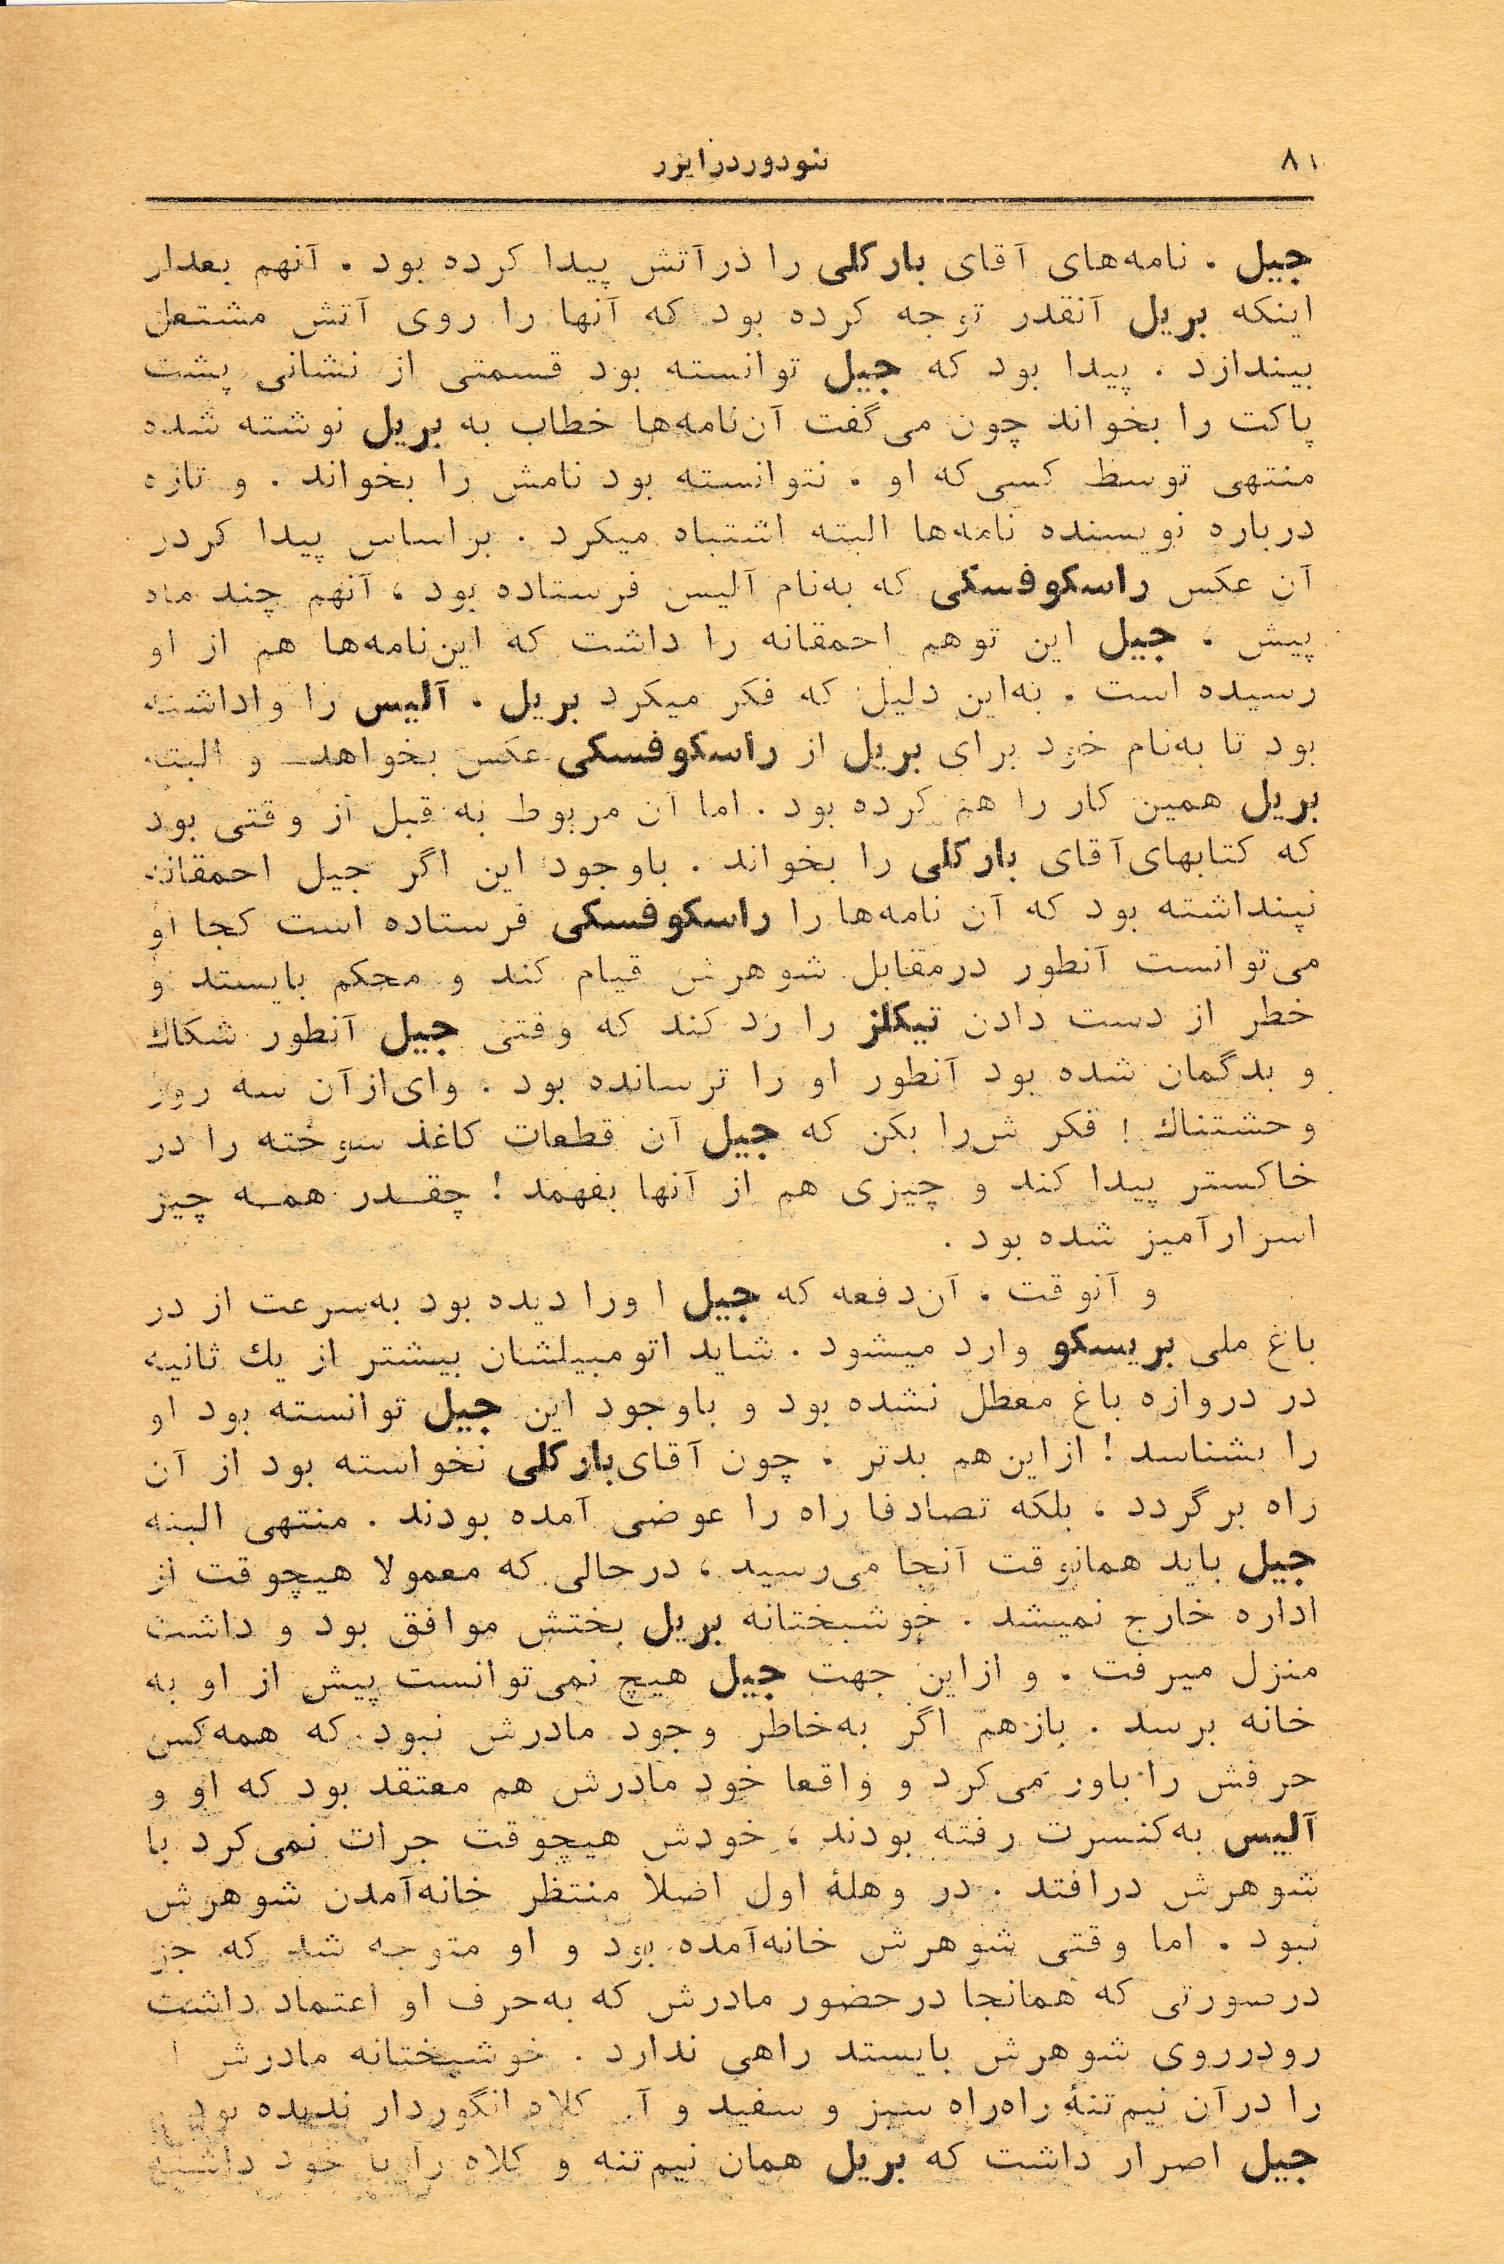 ۸۱
تئودور درایزر
جیل . نامه‌های آقای بارکلی را در آتش پیدا کرده بود . آنهم بعداز
اینکه بریل آنقدر توجه کرده بود که آنها را روی آتش مشتعل
بیندازد . پیدا بود که جیل توانسته بود قسمتی از نشانی پشت
پاکت را بخواند چون می‌گفت آن‌نامه‌ها خطاب به بریل نوشته شده
منتهی توسط کسی‌که او . نتوانسته بود نامش را بخواند . و تازه
درباره نویسنده نامه‌ها البته اشتباه میکرد . براساس پیدا کردن
آن عکس راسکوفسکی که به‌نام آلیس فرستاده بود ، آنهم چند ماه
پیش ، جیل این توهم احمقانه را داشت که این‌نامه‌ها هم از او
رسیده است . به‌این دلیل که فکر میکرد بریل . آلیس را واداشته
بود تا به‌نام خود برای بریل از راسکوفسکی عکس بخواهد و البته
بریل همین کار را هم کرده بود . اما آن مربوط به قبل از وقتی بود
که کتابهای‌آقای بارکلی را بخواند . باوجود این اگر جیل احمقانه
پنداشته بود که آن نامه‌ها را راسکوفسکی فرستاده است کجا او
می‌توانست آنطور درمقابل شوهرش قیام کند و محکم بایستد و
خطر از دست دادن تیکلز را رد کند که وقتی جیل آنطور شکاك
و بدگمان شده بود آنطور او را ترسانده بود . وای‌ازآن سه روز
وحشتناك ! فکر ش‌را بکن که جیل آن قطعات کاغذ سوخته را در
خاکستر پیدا کند و چیزی هم از آنها بفهمد ! چقـدر همـه چیز
اسرارآمیز شده بود .
و آنوقت . آن‌دفعه که جیل اورا دیده بود به‌سرعت از در
باغ ملی بریسکو وارد میشود . شاید اتومبیلشان بیشتر از یك ثانیه
در دروازه باغ معطل نشده بود و باوجود این جیل توانسته بود او
را بشناسد ! ازاین‌هم بدتر . چون آقای‌بارکلی نخواسته بود از آن
راه برگردد ، بلکه تصادفا راه را عوضی آمده بودند . منتهی البته
جیل باید همانوقت آنجا می‌رسید ، درحالی که معمولا هیچوقت از
اداره خارج نمیشد . خوشبختانه بریل بختش موافق بود و داشت
منزل میرفت . و ازاین جهت جیل هیچ نمی‌توانست پیش از او به
خانه برسد . بازهم اگر به‌خاطر وجود مادرش نبود که همه‌کس
حرفش را باور می‌کرد و واقعا خود مادرش هم معتقد بود که او و
آلیس به‌کنسرت رفته بودند ، خودش هیچوقت جرات نمی‌کرد با
شوهرش درافتد . در وهلهٔ اول اصلا منتظر خانه‌آمدن شوهرش
نبود . اما وقتی شوهرش خانه‌آمده بود و او متوجه شد که جز
درصورتی که همانجا درحضور مادرش که به‌حرف او اعتماد داشت
رودرروی شوهرش بایستد راهی ندارد . خوشبختانه مادرش
را درآن نیم‌تنهٔ راه‌راه سبز و سفید و آن کلاه انگوردار ندیده بود
جیل اصرار داشت که بریل همان نیم‌تنه و کلاه را با خود داشته